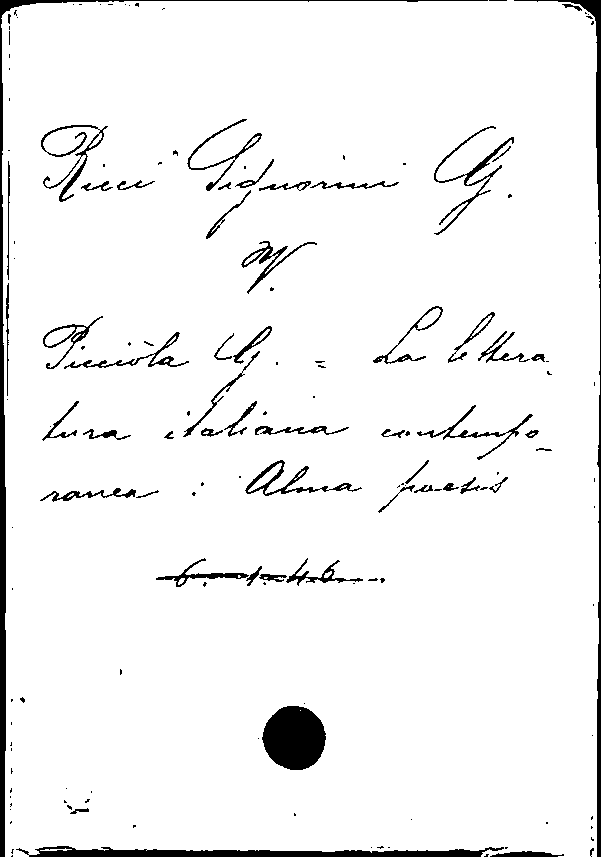 Ricci Signorini G.
V.
Picciòla G. = La lettera-
tura italiana contempo-
ranea : Alma poesis
6. 1. 46.